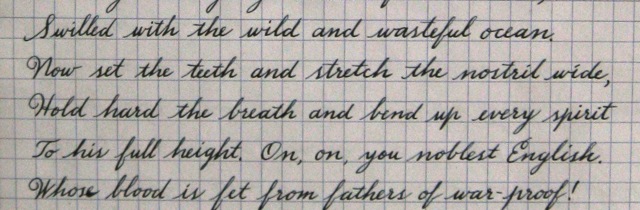 Swilled with the wild and wasteful ocean.
Now set the teeth and stretch the nostril wide,
Hold hard the breath and bend up every spirit
To his full height. On, on, you noblest English.
Whose blood is fet from fathers of war-proof!